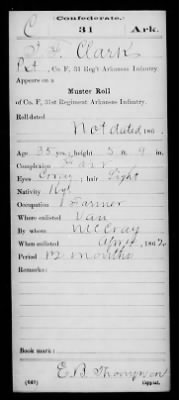 Confederate.
C 31 Ark.
Clark
Pvt, Co. F, 31 Reg't Arkansas Infantry.
Appears on a
Muster Roll
of Co. F, 31st Regiment Arkansas Infantry.
Roll dated
Not dated, 186 .
Age 35 yrs.; height 5 ft 9 in.
Complexion Fair
Eyes Gray; hair Light
Nativity Ky
Occupation Farmer
Where enlisted Van
By whom McCray
When enlisted Apr 4, 1862
Period 12 months
Remarks:
Book mark:
E. B. Thompson
Copyist.